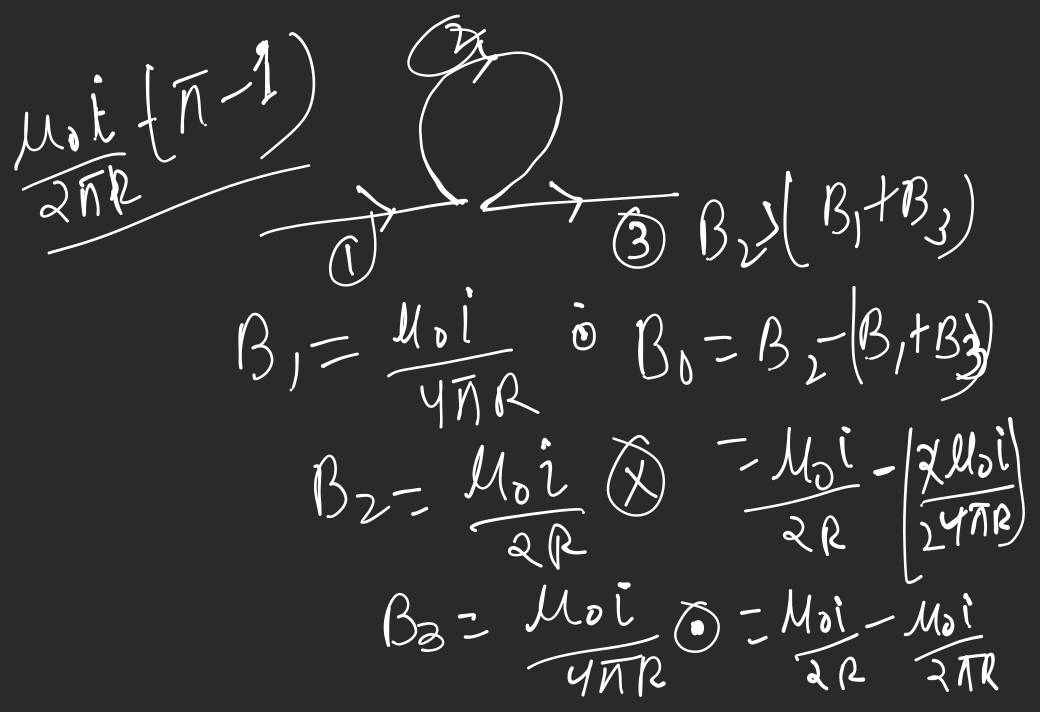 μ₀i/2πR (π-1)
2
① ③ B₂ > (B₁+B₃)
B₁ = μ₀i/4πR ⊙ B₀ = B₂-(B₁+B₃)
B₂ = μ₀i/2R ⊗ = μ₀i/2R - (2μ₀i/24πR)
B₃ = μ₀i/4πR ⊙ = μ₀i/2R - μ₀i/2πR